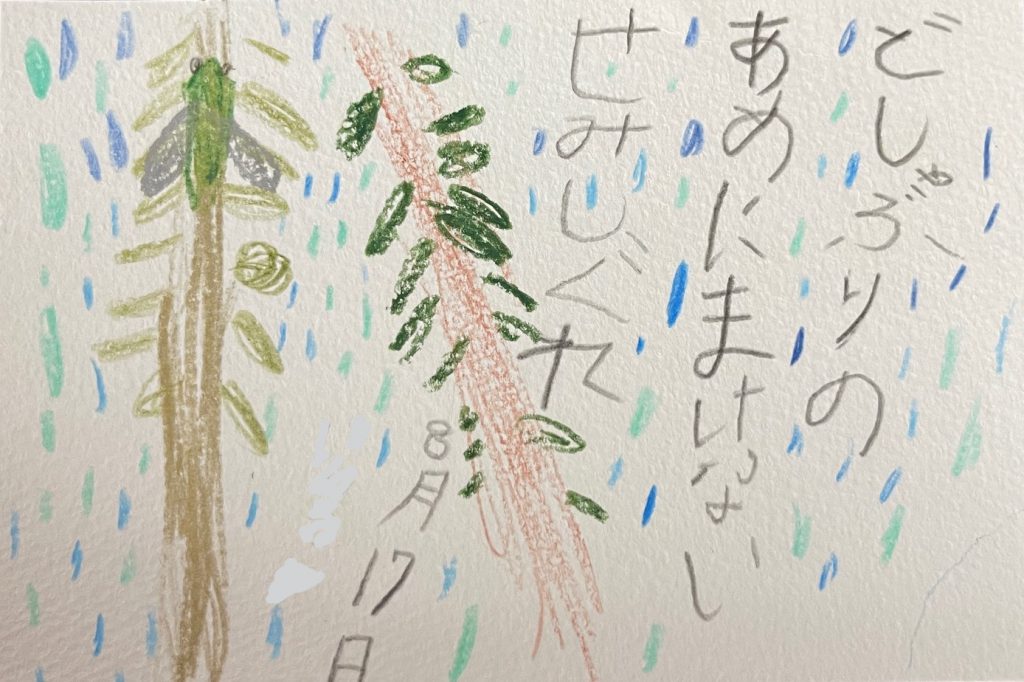 どしゃぶりの
あめにまけない
せみしぐれ
8月17日